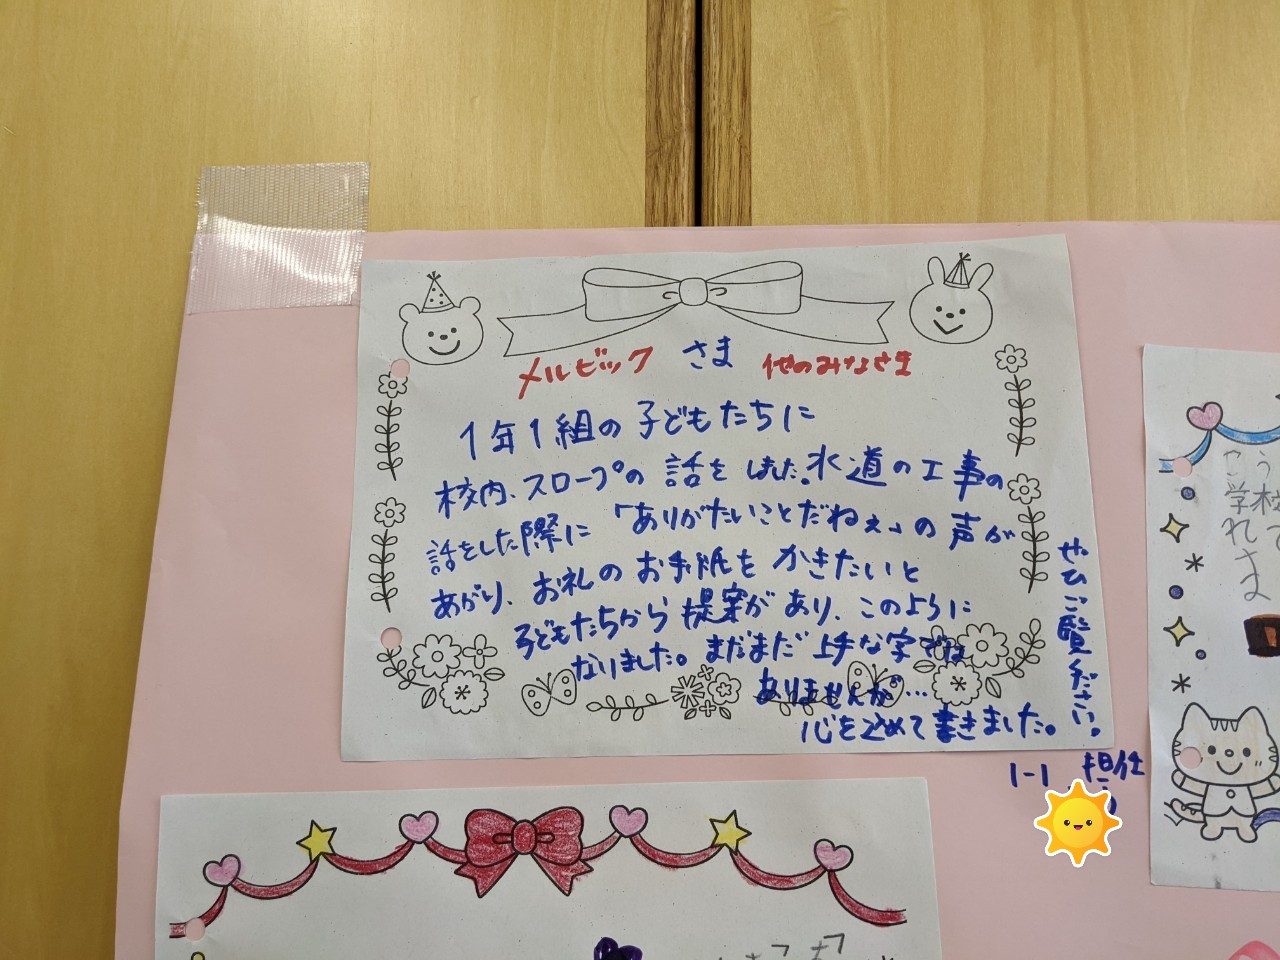 メルビック さま 他のみなさま
1年1組の子どもたちに
校内、スロープの話をしました。水道の工事の
話をした際に「ありがたいことだねぇ」の声が
あがり、お礼のお手紙をかきたいと
子どもたちから提案があり、このように
なりました。まだまだ上手な字では
ありませんが…
心を込めて書きました。
ぜひご覧ください。
1-1 担任
こう
学校
れて
さ